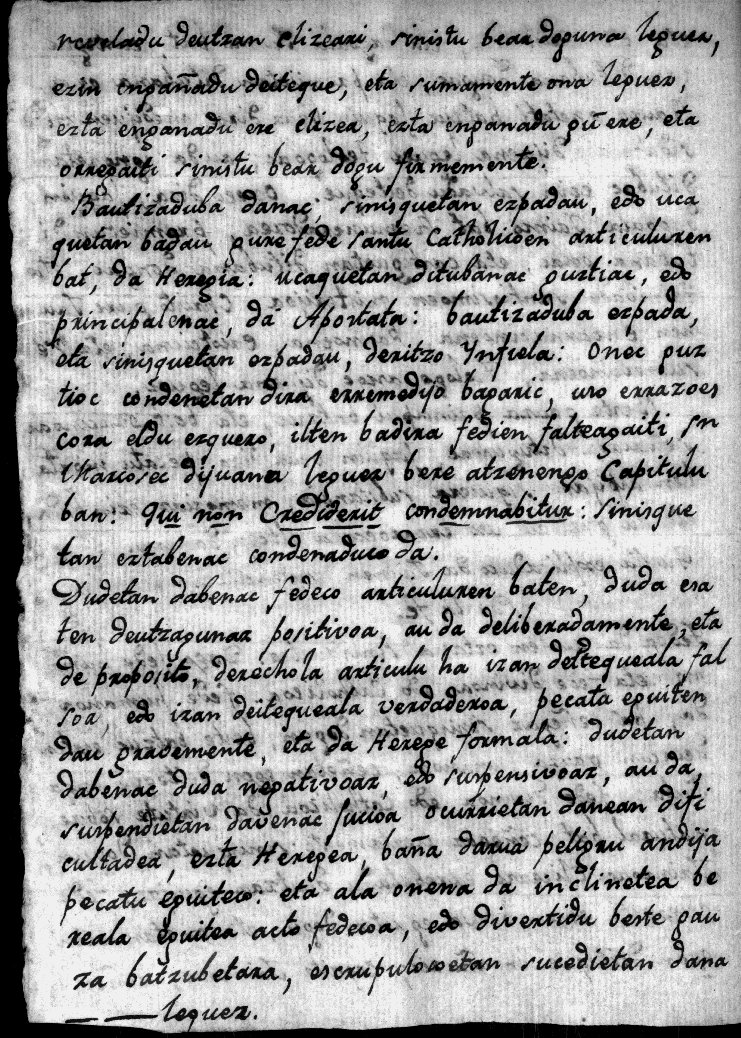 reveladu deutzan elizeari, sinistu bear doguna leguez,
ezin enpañadu deiteque, eta sumamente ona leguez,
ezta engañadu ere elizea, ezta engañadu gu ere, eta
orregaiti sinistu bear dogu firmemente.
Bautizaduba danac, sinisquetan ezpadau, edo uca
quetan badau gure fede santu Catholicoen articuluren
bat, da Heregia: ucaquetan ditubanac guztiac, edo
principalenac, da Apostata: bautizaduba ezpada,
eta sinisquetan ezpadau, deritzo Ynfiela: Onec guz
tioc condenetan dira erremedijo bagaric, uso errazoes
cora eldu ezquero, ilten badira fedien falteagaiti, Sn
Marcosec dijuana leguez bere atzenengo Capitulu
ban: qui non Crediderit condemnabitur: sinisque
tan eztabenac condenaduco da.
Dudetan dabenac fedeco articuluren baten, duda esa
ten deutzagunaz positivoa, au da deliberadamente, eta
de proposito, derechola articulu ha izan deitequeala fal
soa, edo izan deitequeala verdaderoa, pecata eguiten
dau gravemente, eta da Herege formala: dudetan
dabenac duda negativoaz, edo suspensivoaz, au da,
suspendietan davenac juicioa ocurrietan danean difi
cultadea, ezta Heregea, baña darua peligru andija
pecatu eguiteco. eta ala onena da inclinetea be
reala eguitea acto fedecoa, edo divertidu beste gau
za batzubetara, escrupulocoetan sucedietan dana
leguez.